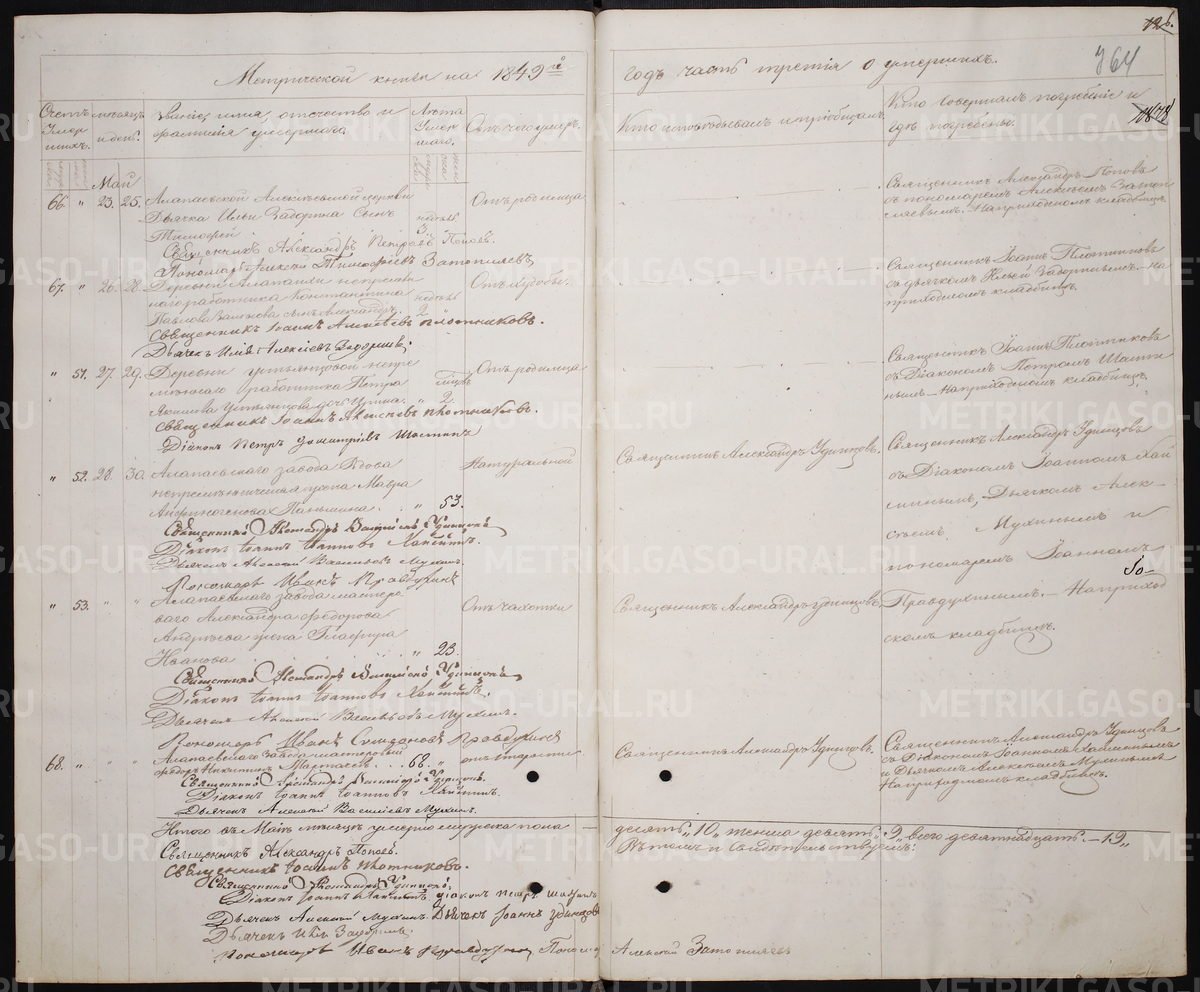 126.
364
Метрической книги на 1849 й
годъ часть третія о умершихъ.
Счетъ умерших.
Мѣсяцъ и день.
Званіе, имя, отчество и фамилія умершаго.
Лѣта умершаго.
Отъ чего умеръ.
Кто исповѣдывалъ и пріобщалъ.
Кто совершалъ погребеніе и гдѣ погребены.
Май
66. " 23. 25. Алапаевской Алексѣевской церкви
Дьячка Ильи Задорина Сынъ
Тимофей недѣль 3.
Отъ родимца
Священникъ Александръ Поповъ
съ пономаремъ Алексѣемъ Затопляевымъ. На приходскомъ кладбищѣ.
Священникъ Александръ Петровъ Поповъ.
Пономарь Алексѣй Тимофеевъ Затопляевъ
67. " 26. 28. Деревни Алапаихи непремѣннаго работника Константина
Павлова сынъ Александръ. недѣль 2
Отъ худобы.
Священникъ Іоаннъ Плотниковъ
съ дьячкомъ Ильей Задоринымъ. На
приходскомъ кладбищѣ.
Священникъ Іоаннъ Алексѣевъ Плотниковъ.
Дьячекъ Илія Алексѣевъ Задоринъ.
" 51. 27. 29. Деревни Устьянцовой непремѣннаго работника Петра
Якимова Устьянцова дочь Ирина. мѣсяц. 2.
Отъ родимца
Священникъ Іоаннъ Плотниковъ
съ Діакономъ Петромъ
На приходскомъ кладбищѣ.
Священникъ Іоаннъ Алексѣевъ Плотниковъ.
Діаконъ Петръ Димитріевъ
" 52. 28. 30. Алапаевскаго завода Вдова
непремѣнническая жена Мавра
Панышина. . " 53.
Натуральной
Священникъ Александръ Удинцовъ.
Священникъ Александръ Удинцовъ
съ Діакономъ Іоанномъ
Дьячкомъ Алексѣемъ Мухинымъ и
пономаремъ Іоанномъ
Правдухинымъ. На приходскомъ кладбищѣ.
Священникъ Александръ Удинцовъ
Діаконъ Іоаннъ Іоанновъ
Дьячекъ Алексѣй Васильевъ Мухинъ.
Пономарь Иванъ Правдухинъ
" 53. " " Алапаевскаго завода мастероваго Александра Федорова
Андреева жена Глафира
Иванова " 23.
Отъ чахотки
Священникъ Александръ Удинцовъ.
Священникъ Александръ Удинцовъ
Діаконъ Іоаннъ Іоанновъ
Дьячекъ Алексѣй Васильевъ Мухинъ.
Пономарь Иванъ Правдухинъ
68. " " " Алапаевскаго Завода мастеровой
Федоръ Никитинъ . . 68. "
отъ старости
Священникъ Александръ Удинцовъ.
Священникъ Александръ Удинцовъ
съ Діакономъ Іоанномъ
и Дьячкомъ Алексѣемъ Мухинымъ
На приходскомъ кладбищѣ.
Священникъ Александръ Удинцовъ.
Діаконъ Іоаннъ Іоанновъ
Дьячекъ Алексѣй Васильевъ Мухинъ.
Итого въ Маѣ мѣсяцѣ умерло мужеска пола
десять „10„ женска девять „9„ всего девятнадцать.—19„
Въ томъ и свидѣтельствуемъ:
Священникъ Александръ Поповъ.
Священникъ Іоаннъ Плотниковъ.
Священникъ Александръ Удинцовъ.
Діаконъ Іоаннъ діаконъ Петръ
Дьячекъ Алексѣй Мухинъ. Дьячекъ Іоаннъ Удинцовъ
Дьячекъ Илья Задоринъ.
Пономарь Иванъ Правдухинъ Пономарь Алексѣй Затопляевъ
METRIKI.GASO-URAL.RU